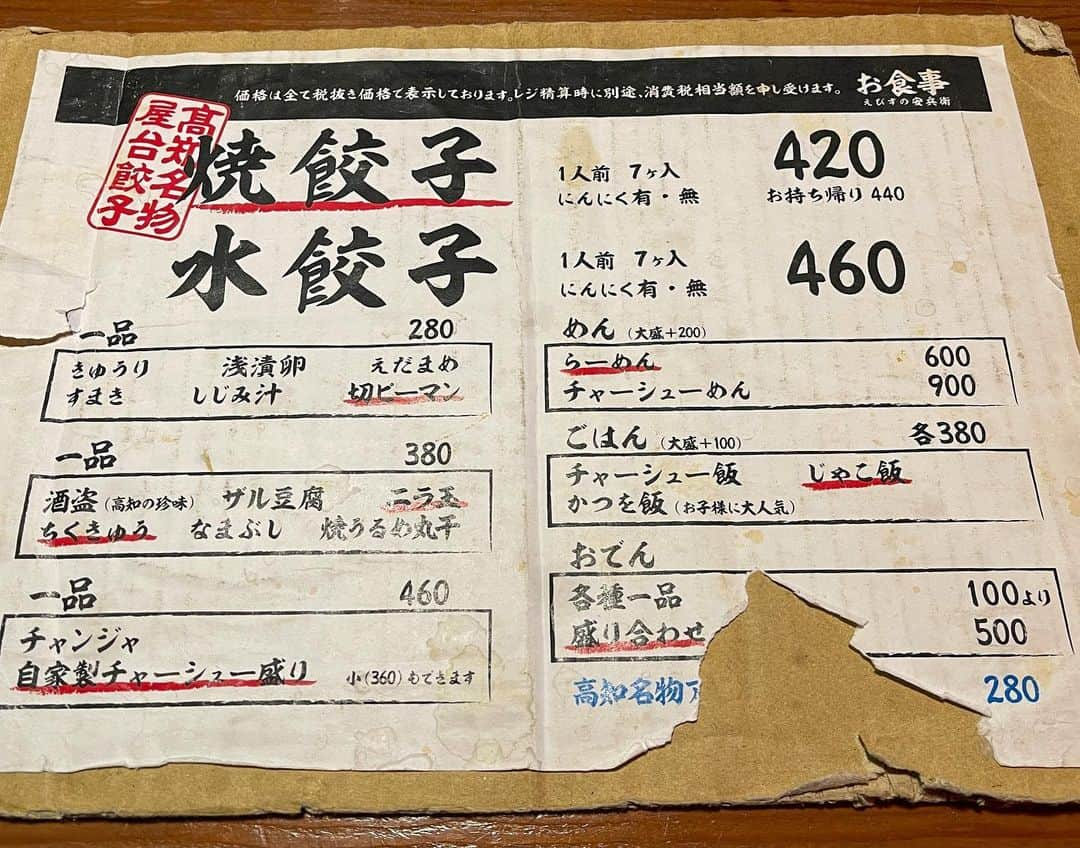 価格は全て税抜き価格で表示しております。レジ精算時に別途、消費税相当額を申し受けます。
お食事
えびすの安兵衛
高知名物
屋台餃子
焼餃子
1人前 7ヶ入
にんにく有・無
420
お持ち帰り 440
水餃子
1人前 7ヶ入
にんにく有・無
460
一品 280
きゅうり 浅漬卵 えだまめ
すまき しじみ汁 切ピーマン
一品 380
酒盗(高知の珍味) ザル豆腐 ニラ玉
ちくきゅう なまぶし 焼うるめ丸干
一品 460
チャンジャ
自家製チャーシュー盛り 小(360)もできます
めん(大盛+200)
らーめん 600
チャーシューめん 900
ごはん(大盛+100) 各380
チャーシュー飯 じゃこ飯
かつを飯(お子様に大人気)
おでん
各種一品 100より
盛り合わせ 500
高知名物 280